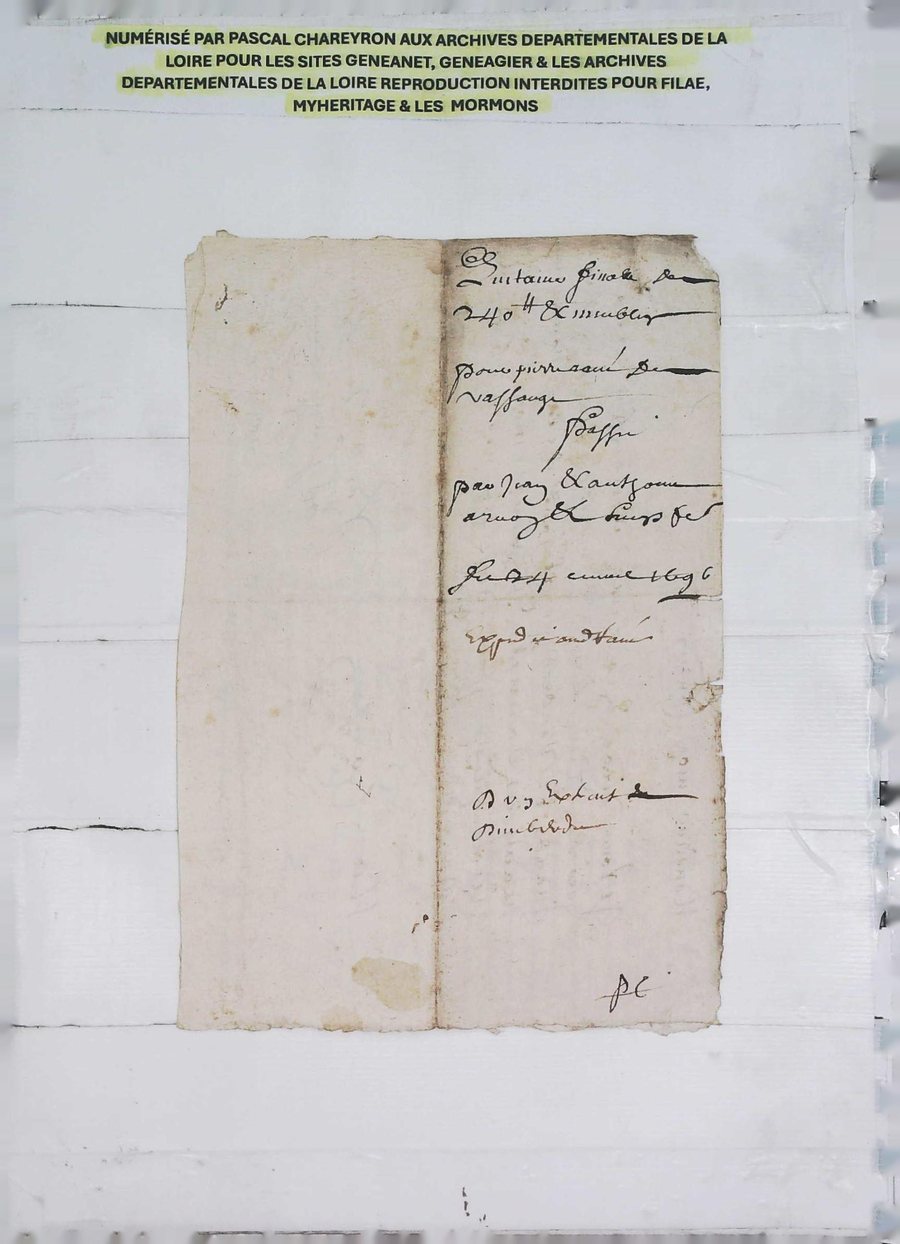 NUMÉRISÉ PAR PASCAL CHAREYRON AUX ARCHIVES DEPARTEMENTALES DE LA
LOIRE POUR LES SITES GENEANET, GENEAGIER & LES ARCHIVES
DEPARTEMENTALES DE LA LOIRE REPRODUCTION INTERDITES POUR FILAE,
MYHERITAGE & LES MORMONS
Quittance finale de
240 tt & meubles
pour pierre de
vassange
Passé
par Jean & anthoine
&
Le 24 1696
Expedié
D un Extrait de